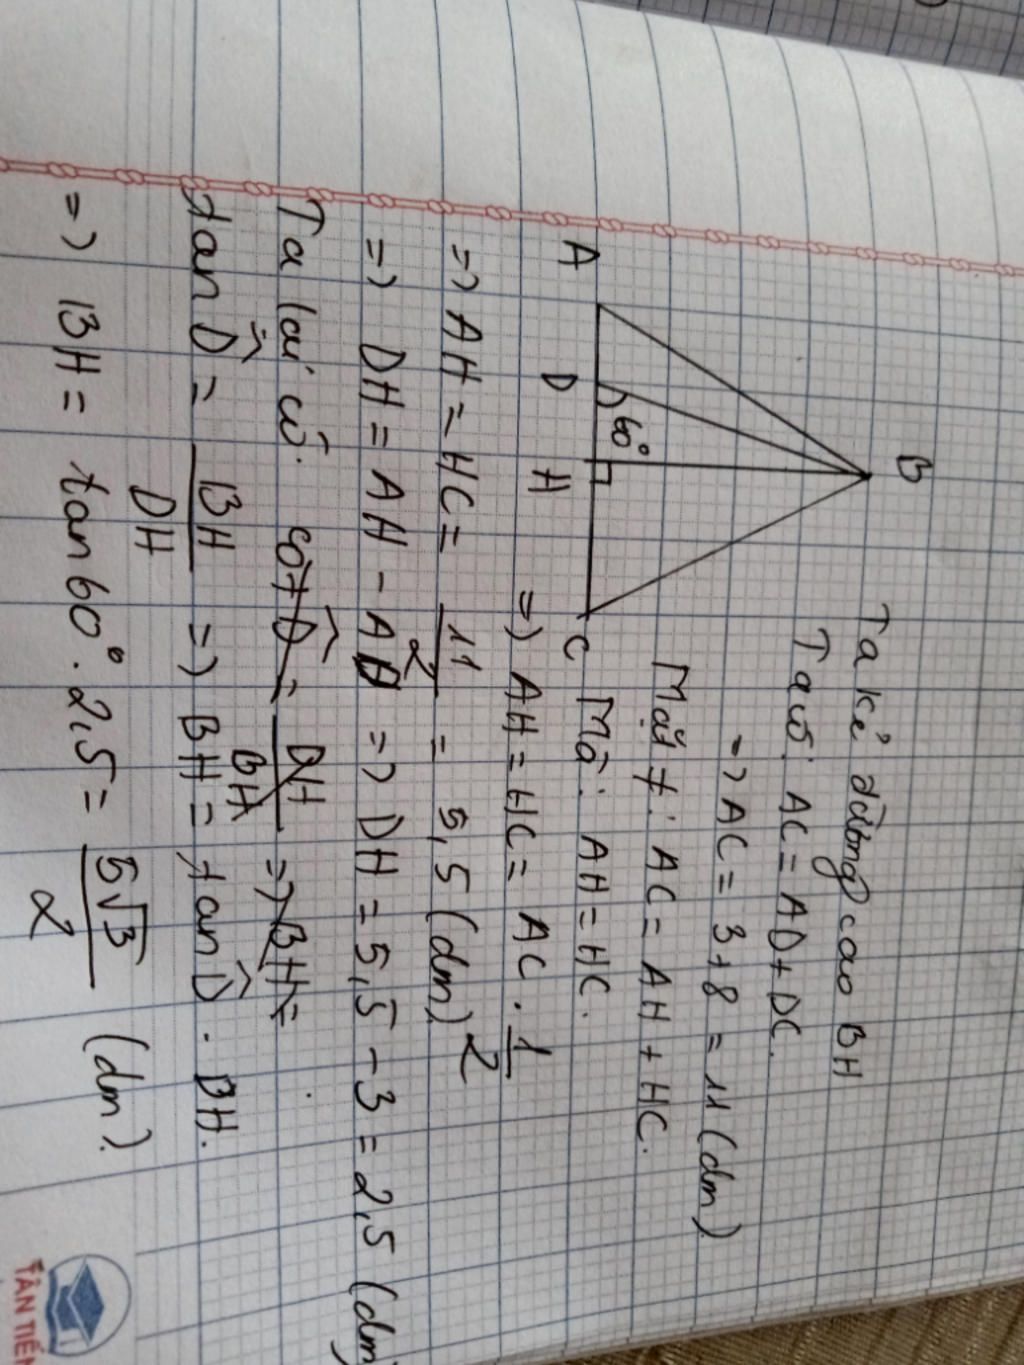 B
60°
A D H C
Ta kẻ đường cao BH
Ta có: AC = AD + DC.
=> AC = 3 + 8 = 11 (dm)
Mặt ≠: AC = AH + HC.
Mà: AH = HC.
=> AH = HC = AC . 1/2
=> AH = HC = 11/2 = 5,5 (dm)
=> DH = AH - AD => DH = 5,5 - 3 = 2,5 (dm)
Ta lại có: cot D̂ = DH/BH => BH =
tan D̂ = BH/DH => BH = tan D̂ . DH.
=> BH = tan 60° . 2,5 = 5√3/2 (dm).
TÂN TIẾN